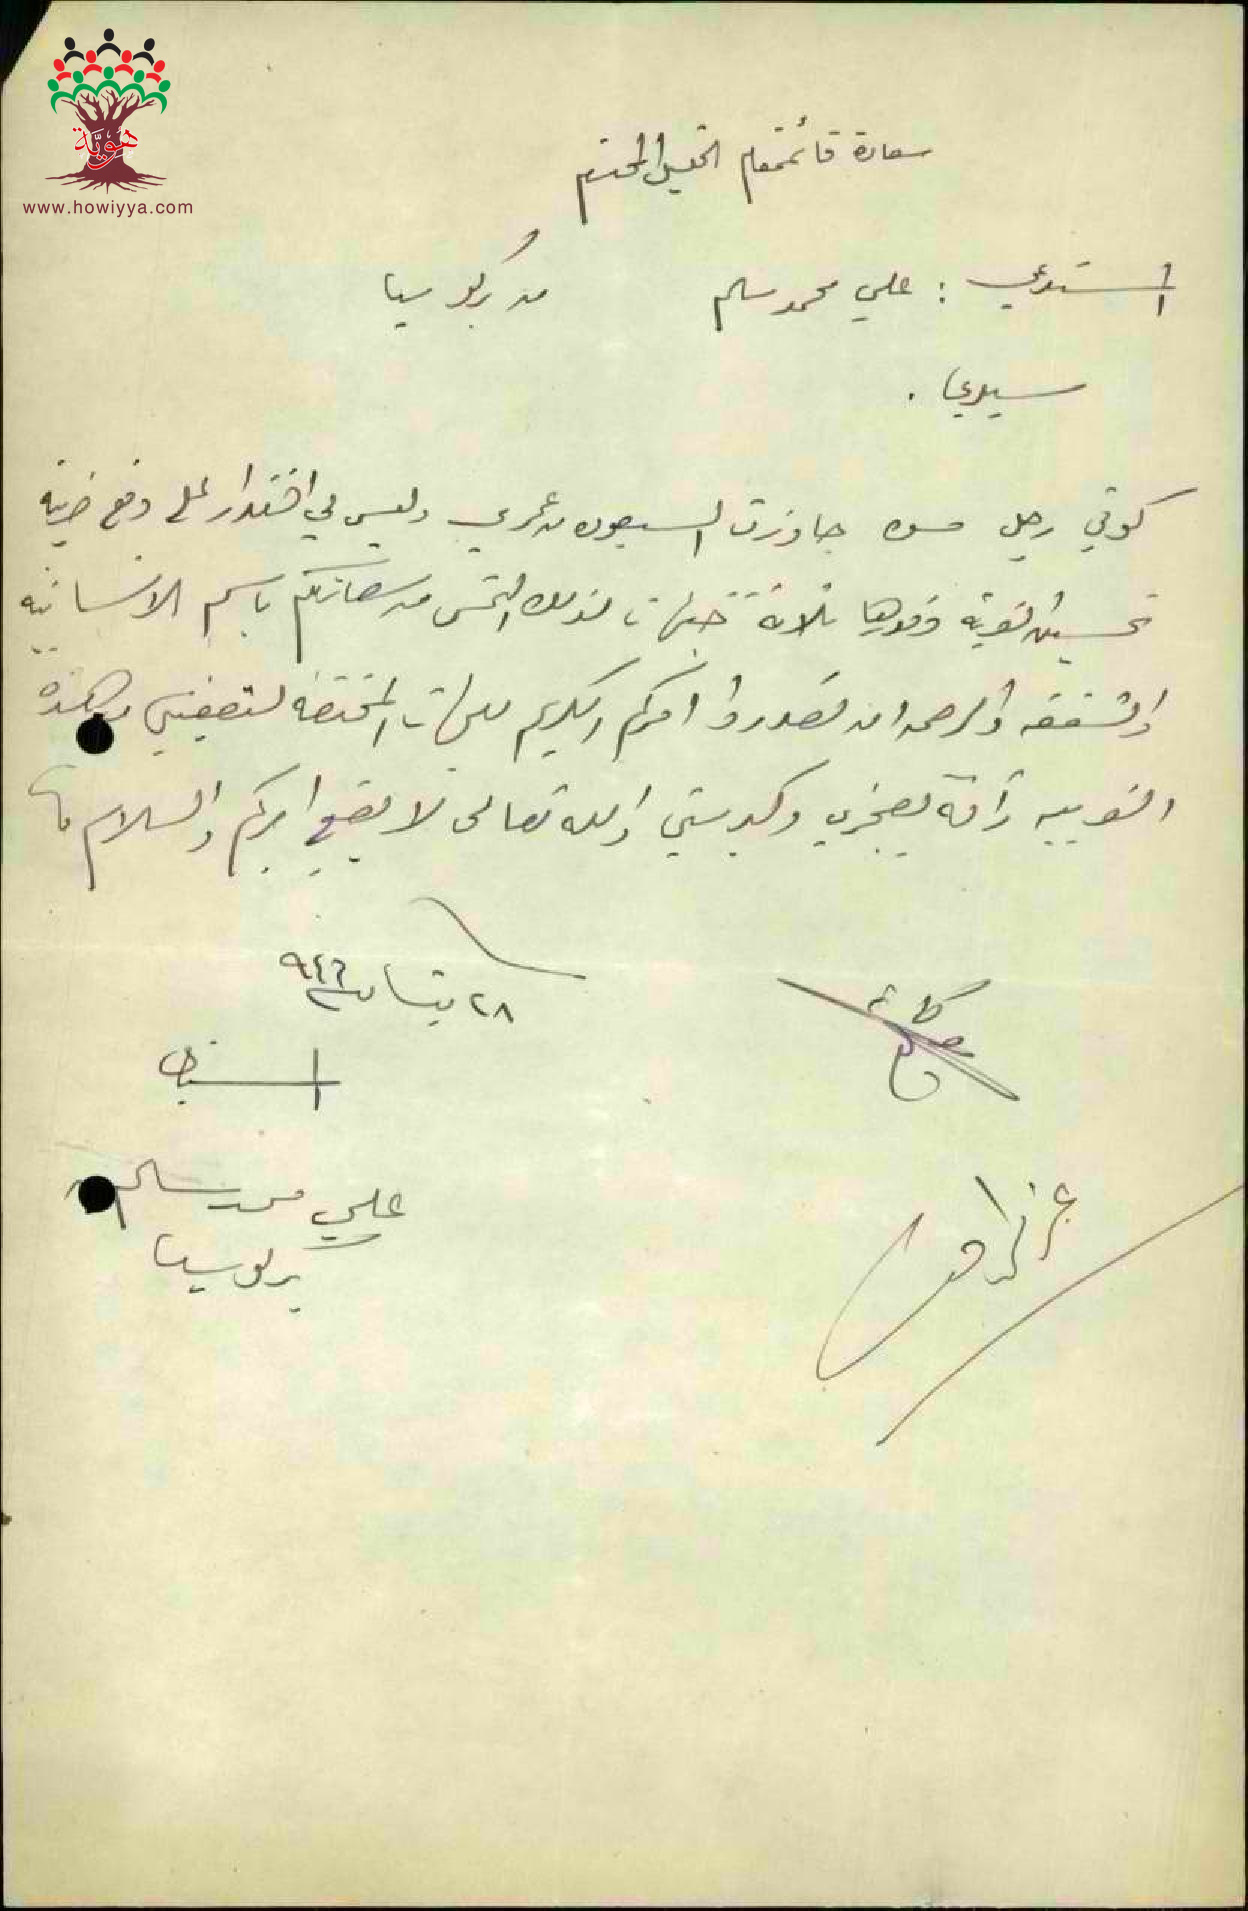 هوية
www.howiyya.com
سعادة قائمقام الخليل المحترم
المستدعي : علي محمد سالم من بركوسيا
سيدي .
كوني رجل مسن جاوزت السبعون من عمري وليس لي اقتدار على دفع ضريبة
تحسين القرية وقدرها ثلاثة جنيهات لذلك التمس من سعادتكم باسم الانسانية
والشفقه والرحمه ان تصدروا امركم الكريم للجهات المختصة لتعفيني من هذه
الضريبه رأفة بعجزي وكبر سني والله تعالى لا يضيع اجركم والسلام
٢٨ نيسان سنة ٩٤٦
المستدعي
علي محمد سالم
بركوسيا